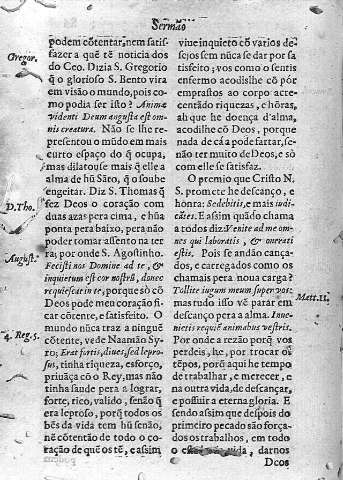 Sermão
podem cõtentar, nem satis-
fazer a quẽ tẽ noticia dos
do Ceo. Dizia S. Gregorio
q̃ o glorioso S. Bento vira
em visão o mundo, pois co-
mo podia ser isto? Animæ
videnti Deum angusta est om-
nis creatura. Não se lhe re-
presentou o mũdo em mais
curto espaço do q̃ ocupa,
mas dilatouse mais q̃ elle a
alma de hũ Sãto, q̃ o soube
engeitar. Diz S. Thomas q̃
fez Deos o coração com
duas azas pera cima, e hũa
ponta pera baixo, pera não
poder tomar assento na ter
ra; por onde S. Agostinho.
Fecisti nos Domine ad te, &
inquietum est cor nostrũ, donec
requiescat in te, porque só cõ
Deos póde meu coração fi
car cõrente, e satisfeito. O
mundo nũca traz a ninguẽ
cõtente, vede Naamão Sy-
ro; Erat fortis, diues, sed lepro-
sus, tinha riqueza, esforço,
priuãça cõ o Rey, mas não
tinha saude pera a lograr,
forte, rico, valido, senão q̃
era leproso, porq̃ todos os
bẽs da vida tem hũ senão,
nẽ cõtentão de todo o co-
ração de quẽ os tẽ, e assim
Gregor.
D. Tho.
August.
4. Reg. 5.
viue inquieto cõ varios de-
sejos sem nũca se dar por sa
tisfeito; vos como o sentis
enfermo acodislhe cõ põr
emprastos ao corpo acre-
centãdo riquezas, e hõras,
ah que he doença d'alma,
acodilhe cõ Deos, porque
nada de cá a pode fartar, se-
não ter muito de Deos, e só
com elle se satisfaz.
O premio que Cristo N.
S. promete he descanço, e
honra: Sedebitis, e mais iudi-
cãtes. E assim quãdo chama
a todos diz: Venite ad me om-
nes qui laboratis, & onerati
estis. Pois se andão cança-
dos, e carregados como os
chamais pera noua carga?
Tollite iugum meum super vos:
mas tudo isso vẽ parar em
descanço pera a alma. Inue-
nietis requiẽ animabus vestris.
Por onde a rezão porq̃ vos
perdeis, he, por trocar os
tẽpos, porq̃ aqui he tempo
de trabalhar, e merecer, e
na outra vida, de descançar,
e possuir a eterna gloria. E
sendo assim que despois do
primeiro pecado são força-
dos os trabalhos, em todo
o estado da vida, darnos
Deos
Matt. 11.